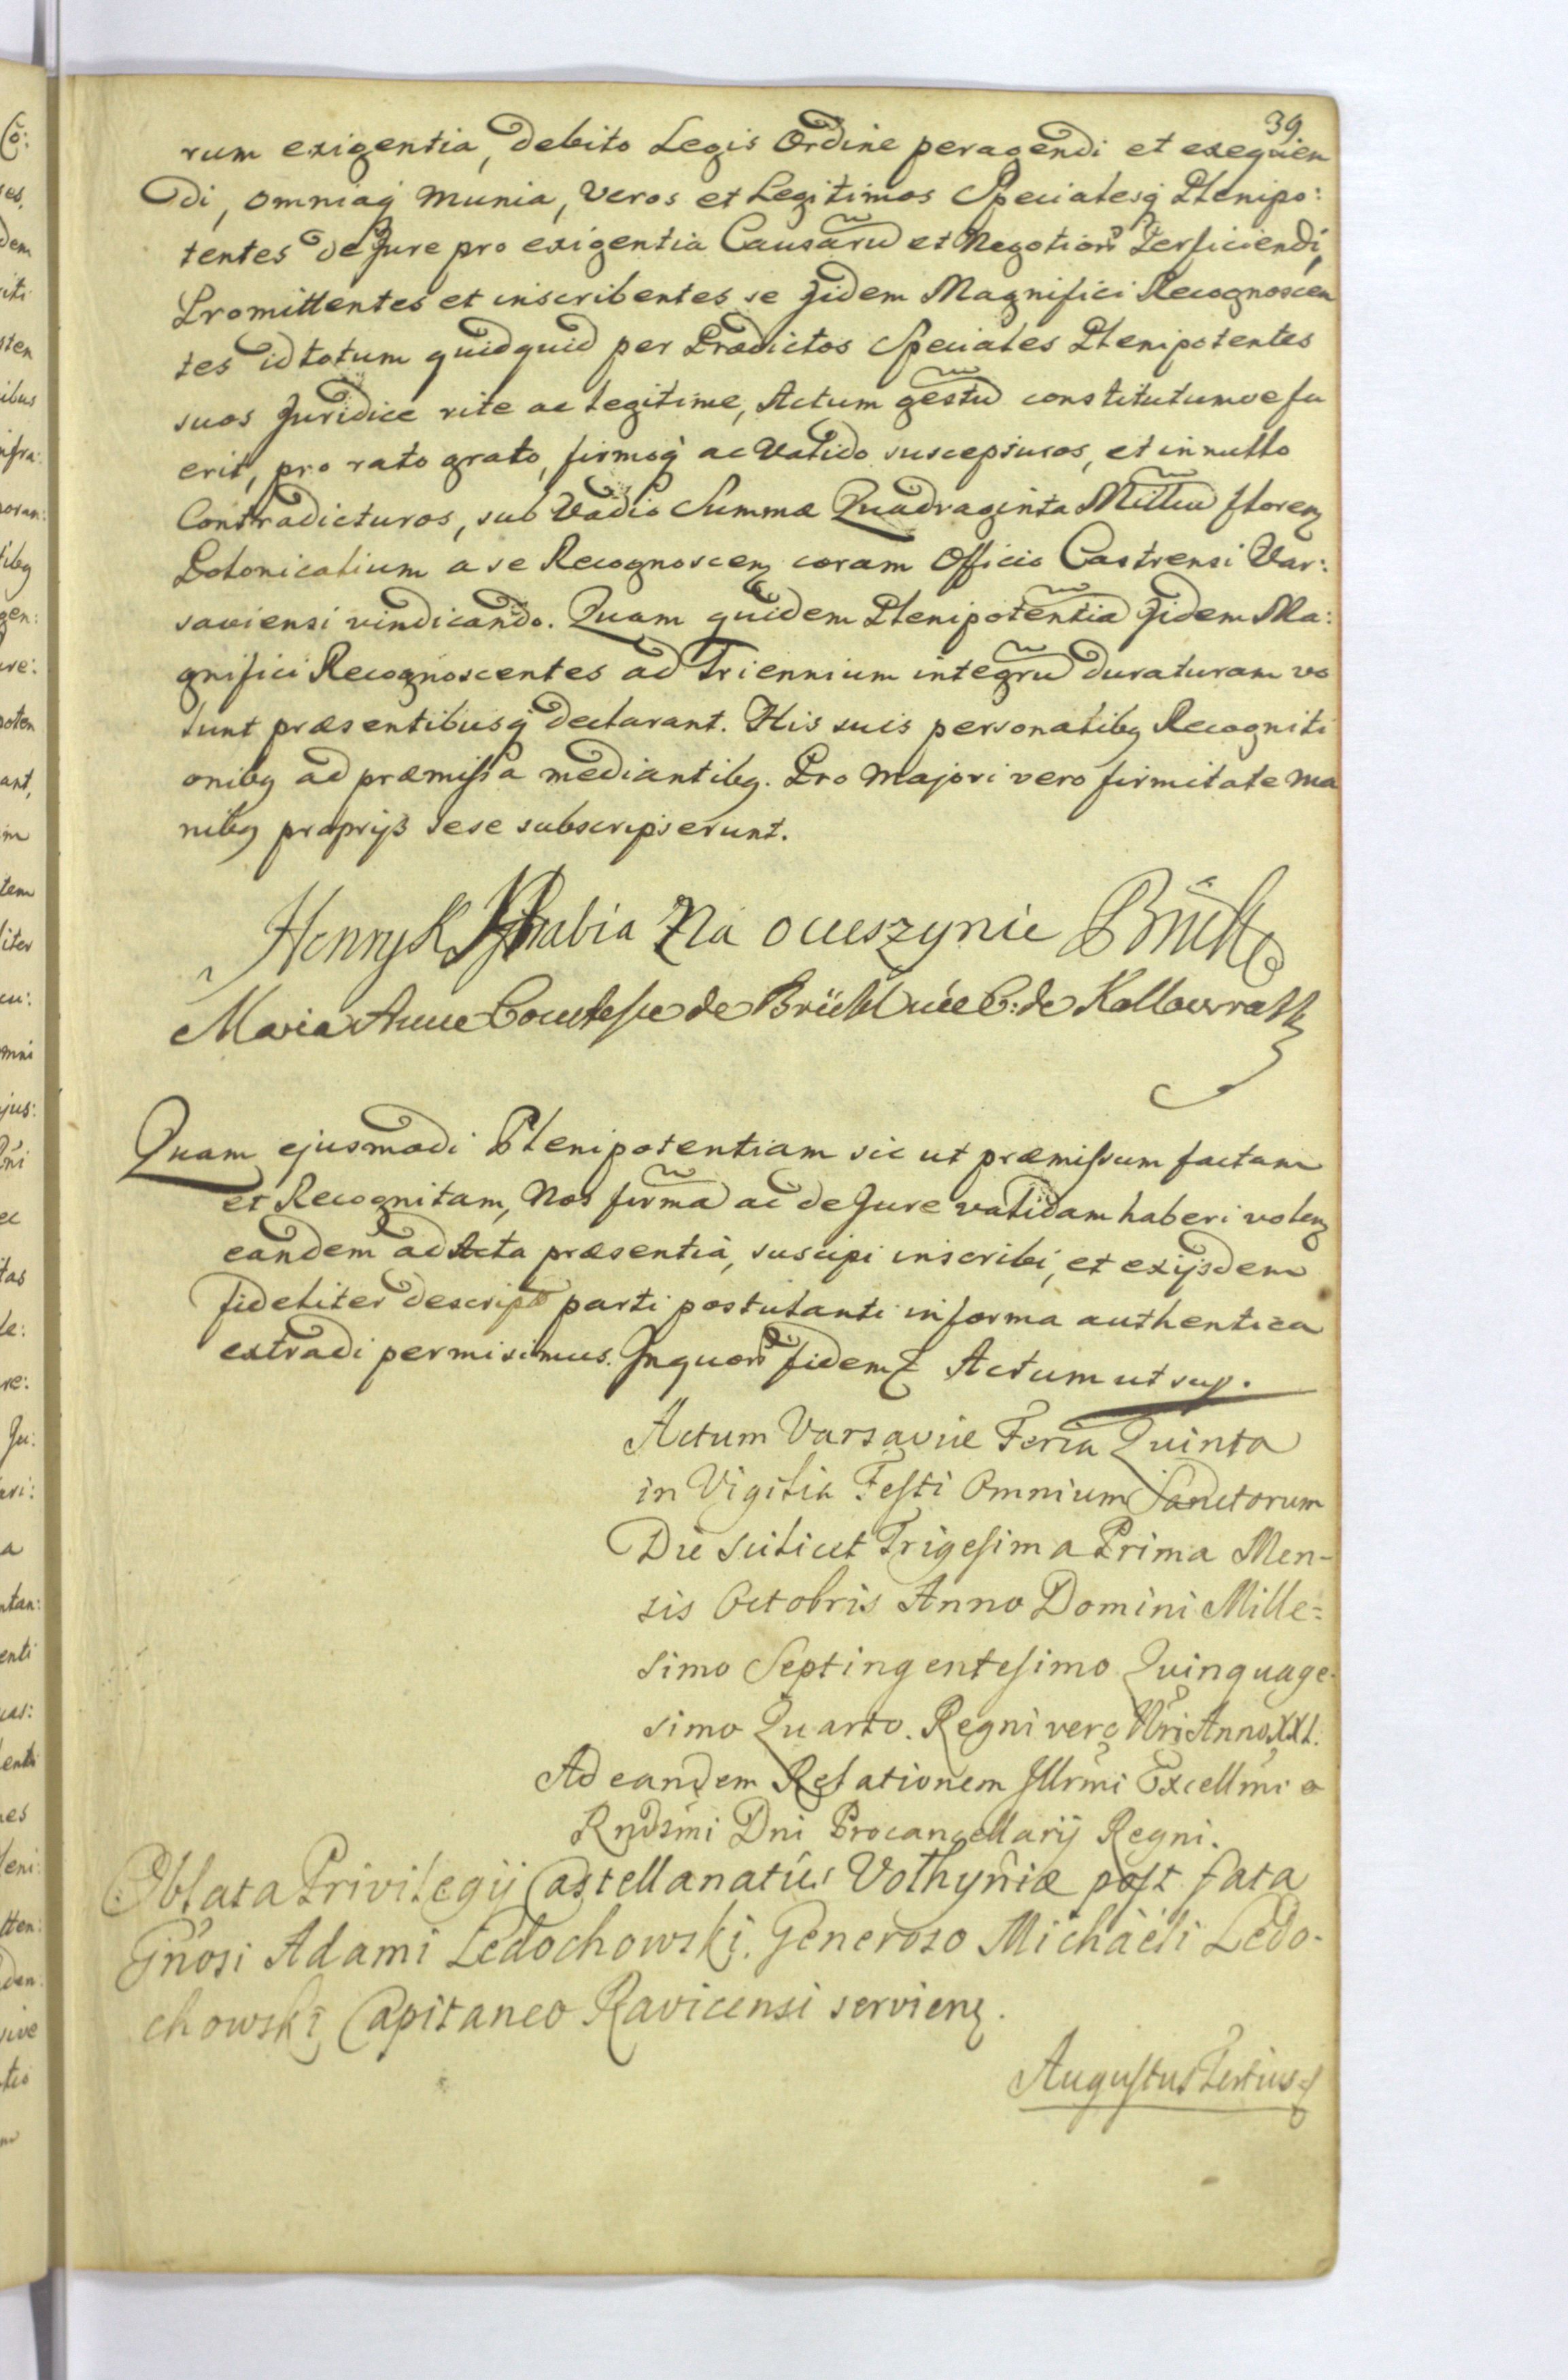 39.
rum exigentia, debito Legis Ordine peragendi et exequen
di, omniaq munia, veros et Legitimos Specialesq Plenipo:
tentes de Jure pro exigentia Causarũ et Negotior Perficiendi,
Promittentes et inscribentes se Jidem Magnifici Recognoscen
tes id totum quidquid per Prædictos Speciales Plenipotentes
suos Juridice rite ac legitime, Actum gestũ constitutumve fu
erit, pro rato grato, firmoq ac Valido suscepturos, et in nullo
Contradicturos, sub Vadio Summæ Quadraginta Milliũ floren
Polonicalium a se Recognoscen coram Officio Castrensi Var:
saviensi vindicando. Quam quidem Plenipotentiã Jidem Ma:
gnifici Recognoscentes ad Triennium integrũ duraturam vo
lunt præsentibusq declarant. His suis personalibq Recogniti
onibq ad præmissa mediantibq. Pro Majori vero firmitate ma
nibq proprijs sese subscripserunt.
Henryk Hrabia Na ocieszynie Brühl
Maria Anne Comtesse de Brühl née C: de Kollowrath
Quam ejusmodi Plenipotentiam sic ut præmissum factam
et Recognitam, Nos firmã ac de Jure validam haberi volen
eandem ad Acta præsentia, suscipi inscribi, et ex ijsdem
fideliter descripto parti postulanti in forma authentica
extradi permisimus. In quor fidem Actum ut sup.
Actum Varsaviæ Feria Quinta
in Vigilia Festi Omnium Sanctorum
Die scilicet Trigesima Prima Men-
sis Octobris Anno Domini Mille=
simo Septingentesimo Quinquage-
simo Quarto. Regni vero Nri Anno XXI.
Ad eandem Relationem Illrmi Excellmi e
Rndsmi Dni Procancellarij Regni.
Oblata Privilegij Castellanatûs Volhyniæ post fata
Gnosi Adami Ledochowski. Generoso Michaëli Ledo-
chowski Capitaneo Ravicensi servien.
Augustus Tertius